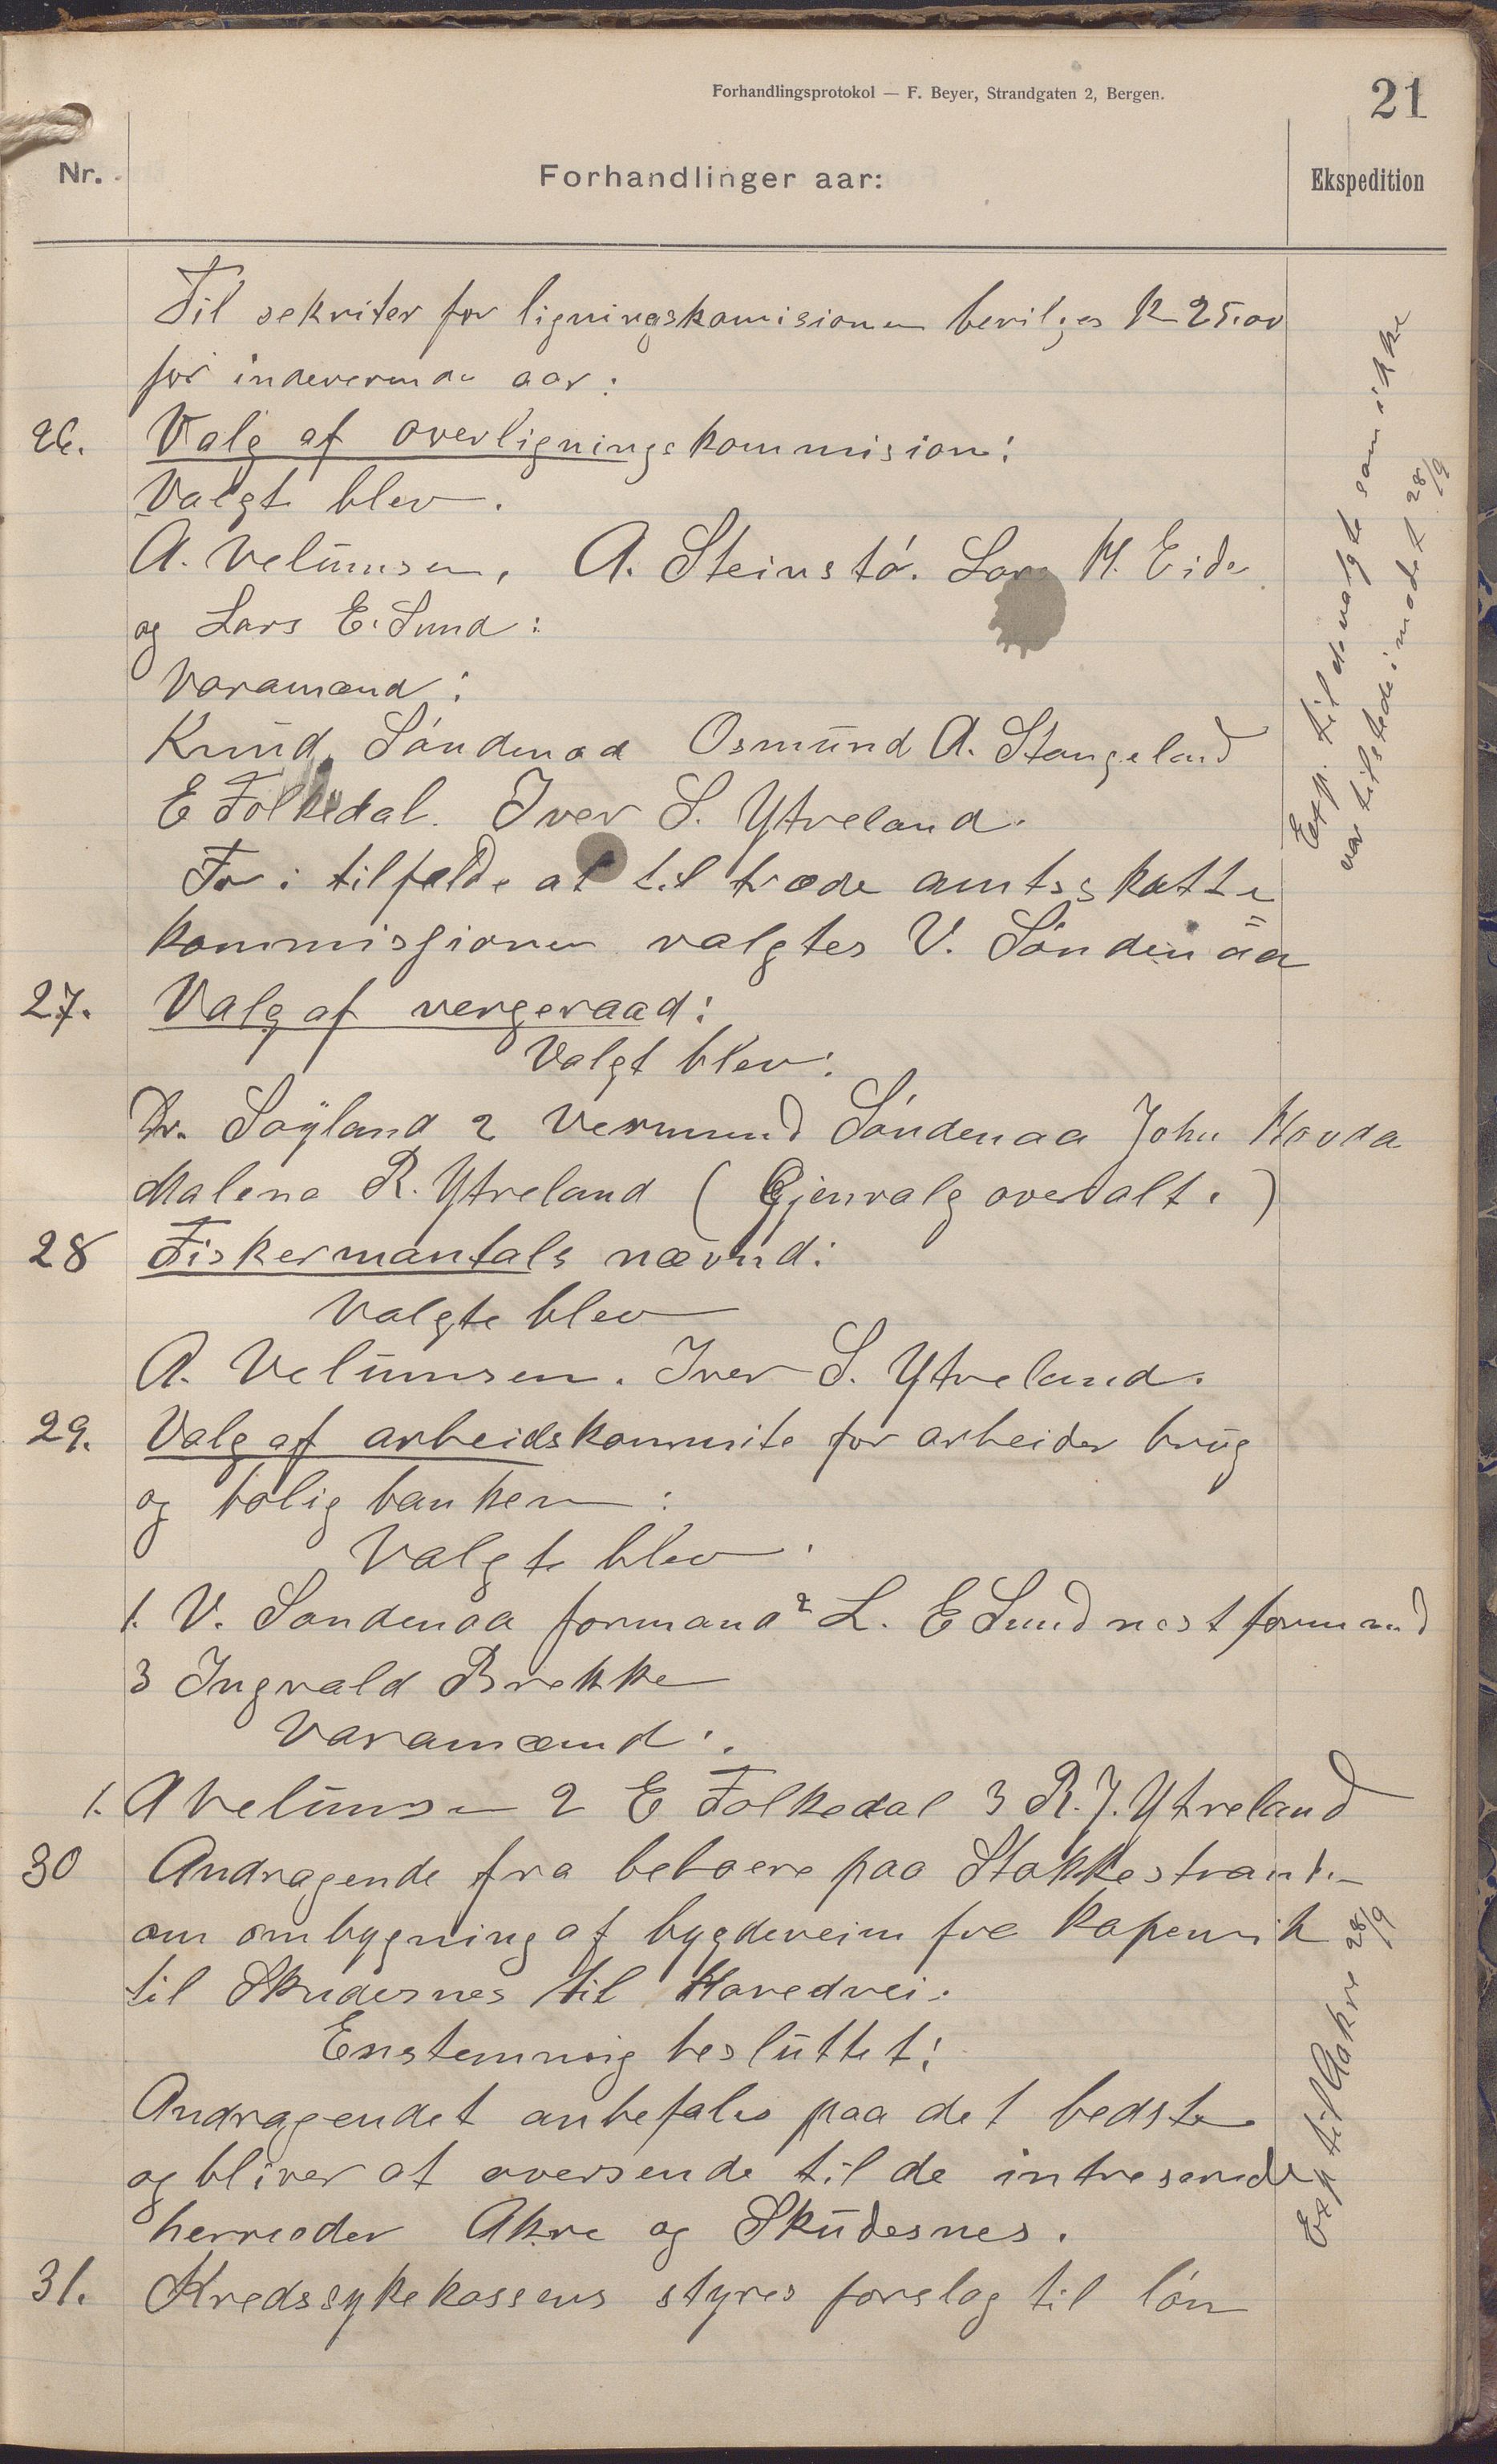 Forhandlingsprotokol — F. Beyer, Strandgaten 2, Bergen.
21
Nr.
Forhandlinger aar:
Ekspedition
Til sekriter for ligningskomisionen bevilges K 25.00
for indeverende aar:
26. Valg af overligningskommision:
Valgt blev.
A. Velumsen, A. Steinstó. Lars M. Eide
og Lars E. Lund:
Varamænd:
Knud Sóndenaa Osmund A. Stangeland
E Folkedal. Iver S. Ytreland.
For i tilfelde at til træde amtsskatte
kommissionen valgtes V. Søndenaa
27. Valg af vergeraad:
Valgt blev:
Dr. Söyland 2 Vermund Sóndenaa John Hovda
Malena R. Ytreland (Gjenvalg overalt.)
28 Fiskermantals nævnd:
Valgte blev
A. Velumsen. Iver S. Ytreland.
29. Valg af arbeidskommite for arbeider brug
og bolig banken:
Valgte blev.
1. V. Sondenaa formand 2 L. E Lund nest formand
3 Ingvald Brekke
Varamænd:
1. A Velumsen 2 E Folkedal 3 R. J. Ytreland
30 Andragende fra beboere paa Stokkestranden
om ombygning af bygdeveim fra Kopervik
til Skudesnes til Hovedvei.
Enstemmig besluttet:
Andragendet anbefales paa det bedste
og bliver at oversende til de intreserede
herreder Akre og Skudesnes.
31. Kredssykekassens styres forslag til lón
Exp. til de valgte som ikke
var tilstede i mødet 28/9
Exp til Aakre 28/9